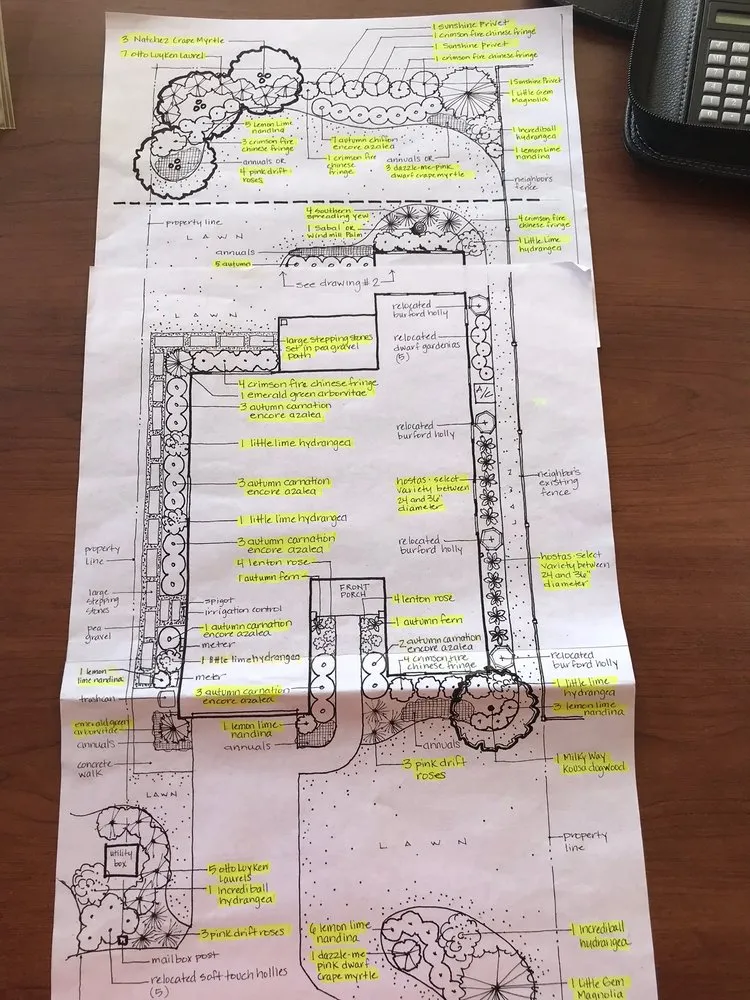 3 Natchez Crape Myrtle
7 otto Luyken Laurel
1 Sunshine Privet
1 crimson fire chinese fringe
1 Sunshine Privet
1 crimson fire chinese fringe
1 Sunshine Privet
1 Little Gem
Magnolia
5 Lemon Lime
nandina
3 crimson fire
chinese fringe
annuals OR
4 pink drift
roses
7 autumn chiffon
encore azalea
1 crimson fire
chinese
fringe
annuals or
3 dazzle-me-pink
dwarf crape myrtle
1 Incrediball
hydrangea
1 Lemon Lime
nandina
neighbors
fence
property line
LAWN
4 southern
spreading yew
1 Sabal or
windmill Palm
4 crimson fire
chinese fringe
1 Little Lime
hydrangea
annuals
5 autumn
see drawing #2
LAWN
relocated
burford holly
large stepping stones
set in pea gravel
path
relocated
dwarf gardenias
(5)
4 crimson fire chinese fringe
1 emerald green arborvitae
3 autumn carnation
encore azalea
A/C
1 little lime hydrangea
relocated
burford holly
3 autumn carnation
encore azalea
hostas-select
variety between
24 and 36"
diameter
neighbor's
existing
fence
1 little lime hydrangea
3 autumn carnation
encore azalea
relocated
burford holly
property
line
4 lenton rose
1 autumn fern
hostas-select
variety between
24 and 36"
diameter
FRONT
PORCH
large
stepping
stones
spigot
irrigation control
4 lenton rose
pea
gravel
1 autumn carnation
encore azalea
meter
1 autumn fern
2 autumn carnation
encore azalea
4 crimson fire
chinese fringe
1 little lime hydrangea
relocated
burford holly
1 lemon
lime nandina
meter
trashcan
3 autumn carnation
encore azalea
1 little lime
hydrangea
3 lemon lime
nandina
emerald green
arborvitae
annuals
1 lemon lime
nandina
annuals
annuals
concrete
walk
3 pink drift
roses
1 Milky Way
Kousa dogwood
LAWN
LAWN
property
line
utility
box
5 otto Luyken
Laurels
1 Incrediball
hydrangea
3 pink drift roses
mailbox post
relocated soft touch hollies
(5)
6 lemon lime
nandina
1 dazzle-me-
pink dwarf
crape myrtle
1 Incrediball
hydrangea
1 Little Gem
Magnolia